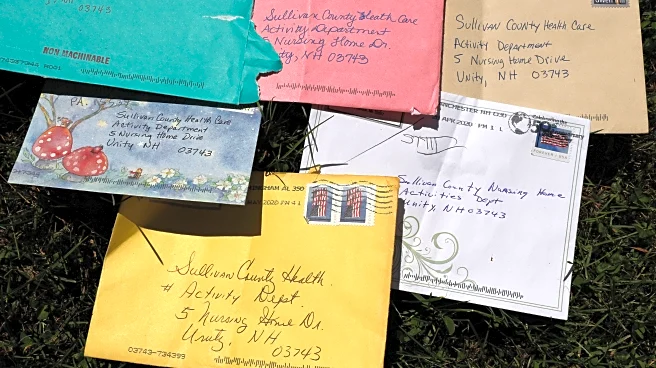 03743
NON-MACHINABLE
Sullivan County Heath Care
Activity Department
5 Nursing Home Dr.
Unity, NH 03743
Sullivan County Health Care
Activity Department
5 Nursing Home Drive
Unity, NH 03743
PA.
Sullivan County Health Care
Activity Department
5 Nursing Home Drive
Unity NH 03743
APR 2020 PM 1 L
FOREVER / USA
Sullivan County Nursing Home
Activities Dept
Unity, NH 03743
AL 350
2020 PM 4 L
Sullivan County Health
# Activity Dept.
5 Nursing Home Dr.
Unity, NH
03743
03743-734399